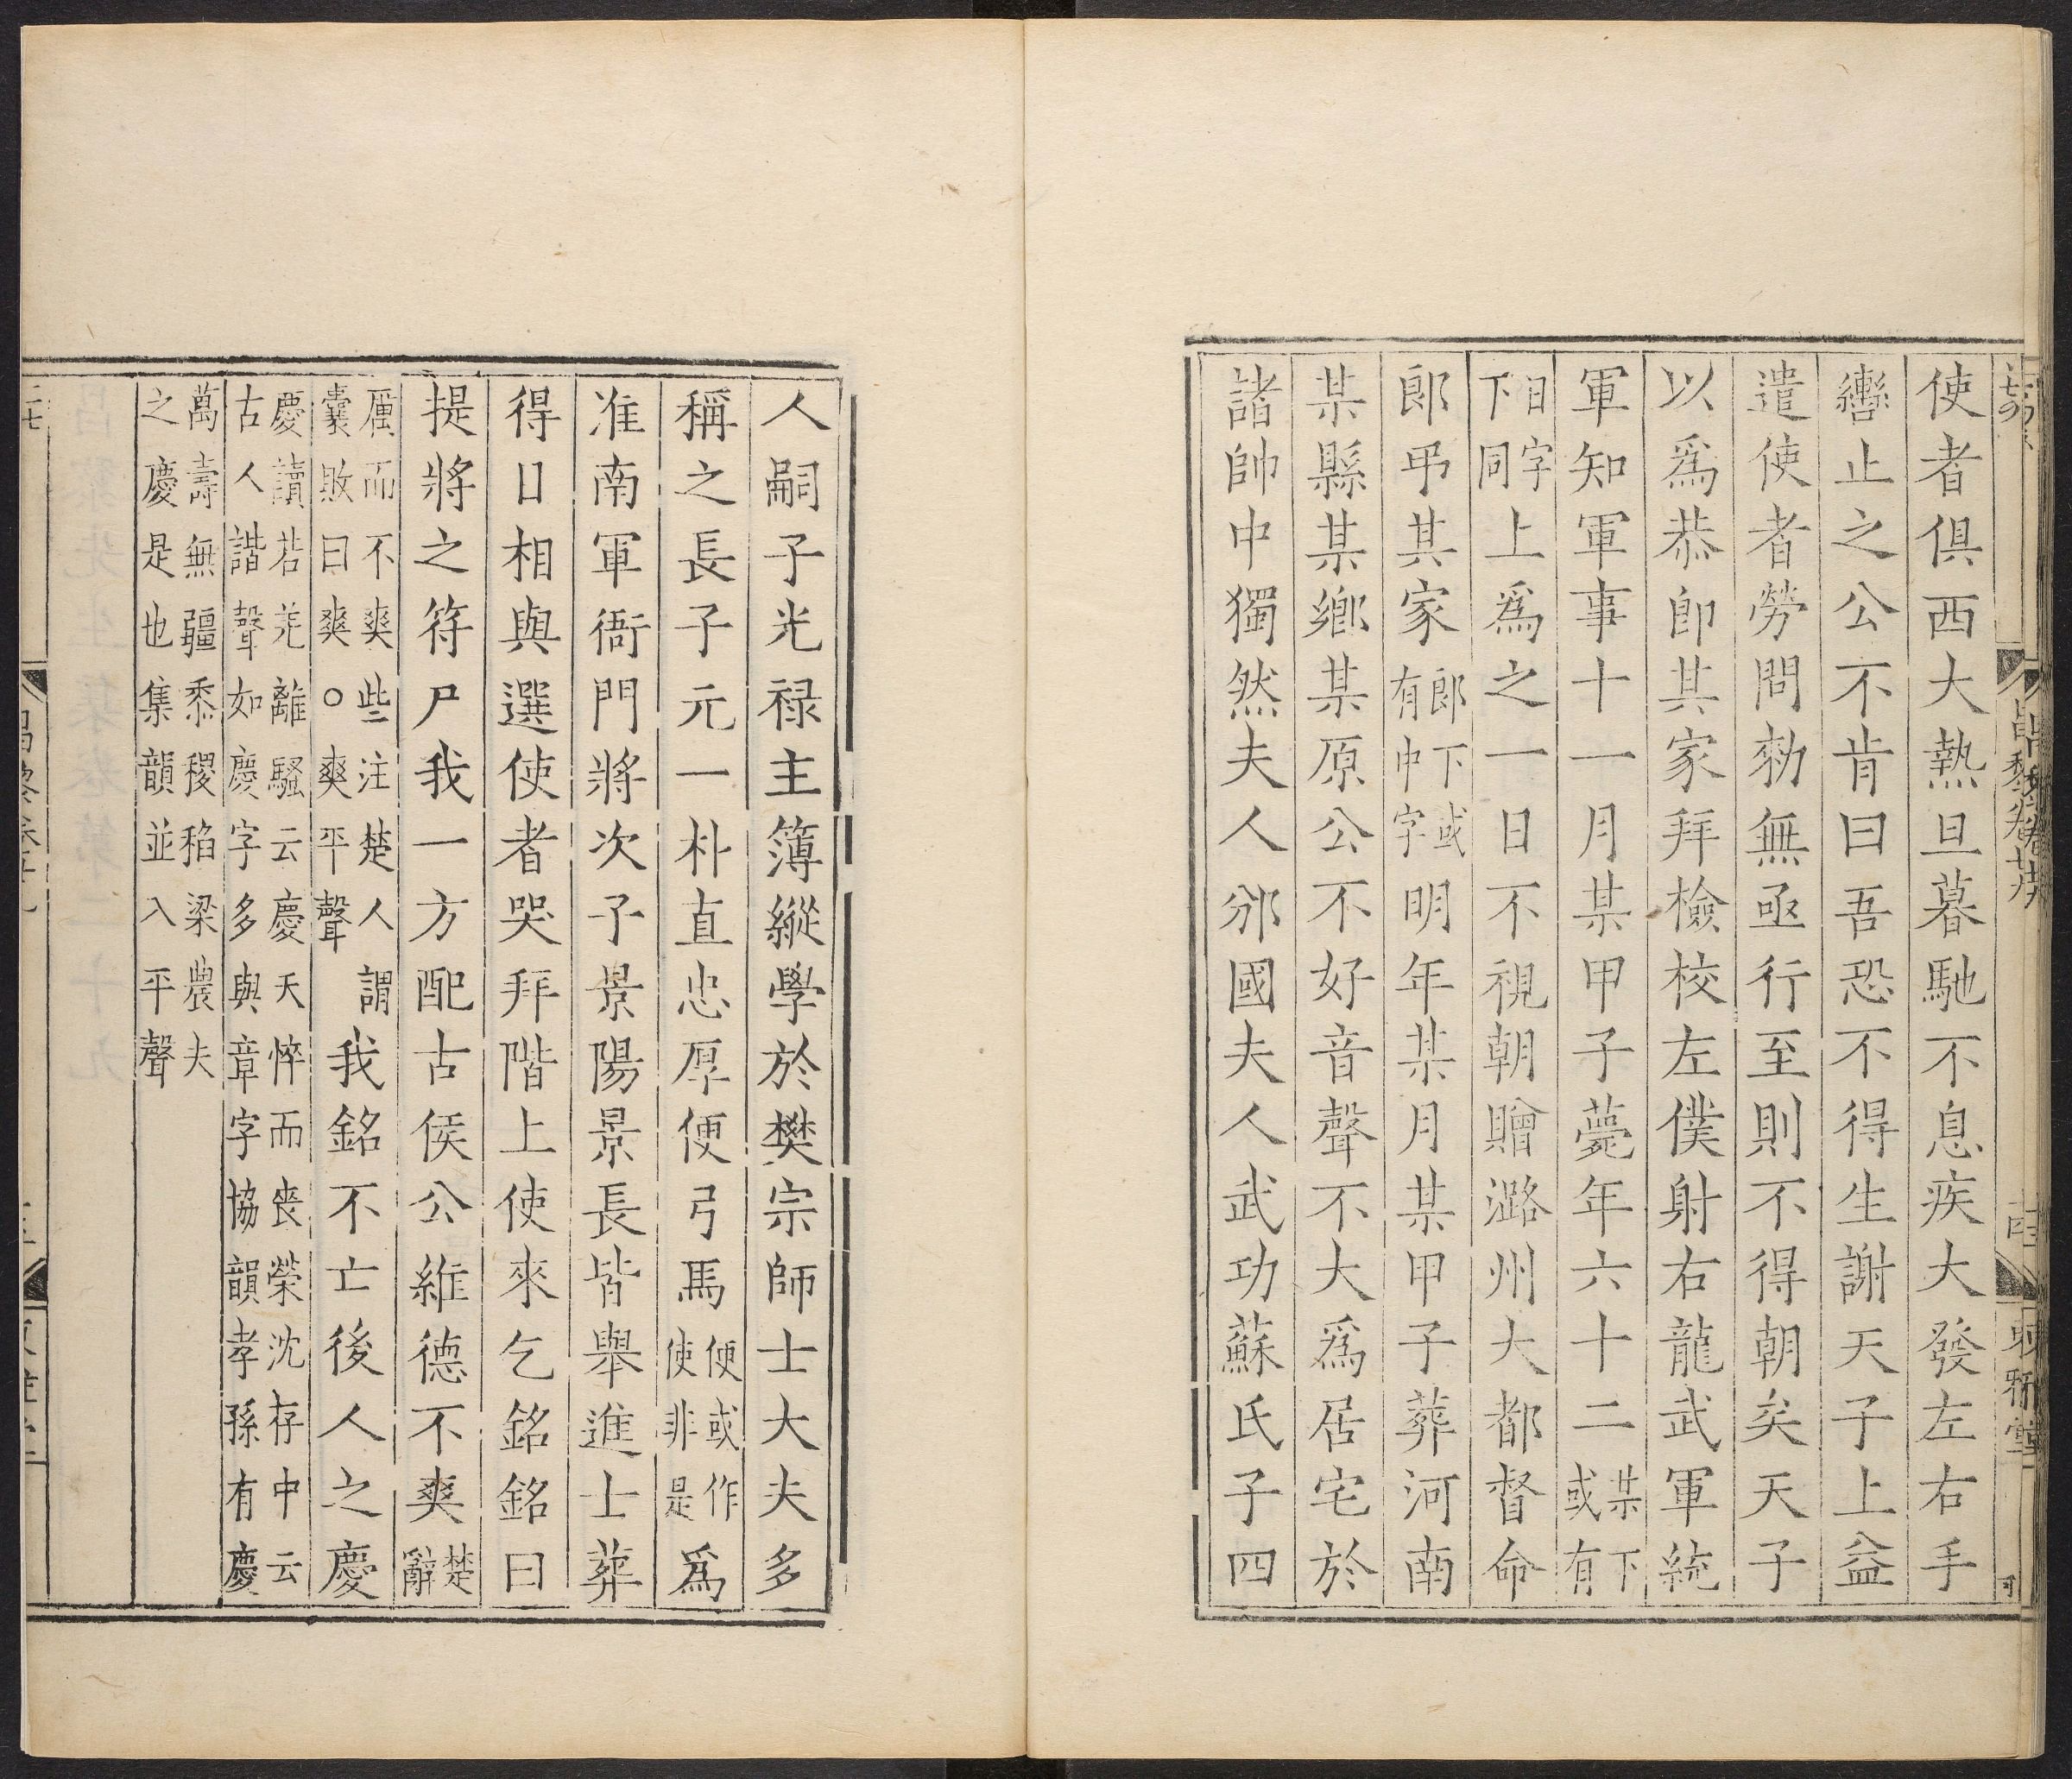 使者俱西大熱旦暮馳不息疾大發左右手
轡止之公不肯曰吾恐不得生謝天子上益
遣使者勞問勑無亟行至則不得朝矣天子
以爲恭卽其家拜檢校左僕射右龍武軍統
軍知軍事十一月某甲子薨年六十二某下或有
日字下同上爲之一日不視朝贈潞州大都督命
郞弔其家郞下或有中字明年某月某甲子葬河南
某縣某鄉某原公不好音聲不大爲居宅於
諸帥中獨然夫人邠國夫人武功蘇氏子四
人嗣子光禄主簿縱學於樊宗師士大夫多
稱之長子元一朴直忠厚便弓馬便或作使非是爲
淮南軍衙門將次子景陽景長皆舉進士葬
得日相與選使者哭拜階上使來乞銘銘曰
提將之符尸我一方配古侯公維德不爽楚辭
厲而不爽些注楚人謂羹敗曰爽○爽平聲我銘不亡後人之慶
慶讀若羌離騷云慶天悴而喪榮沈存中云古人諧聲如慶字多與章字協韻孝孫有慶
萬壽無疆黍稷稻梁農夫之慶是也集韻並入平聲